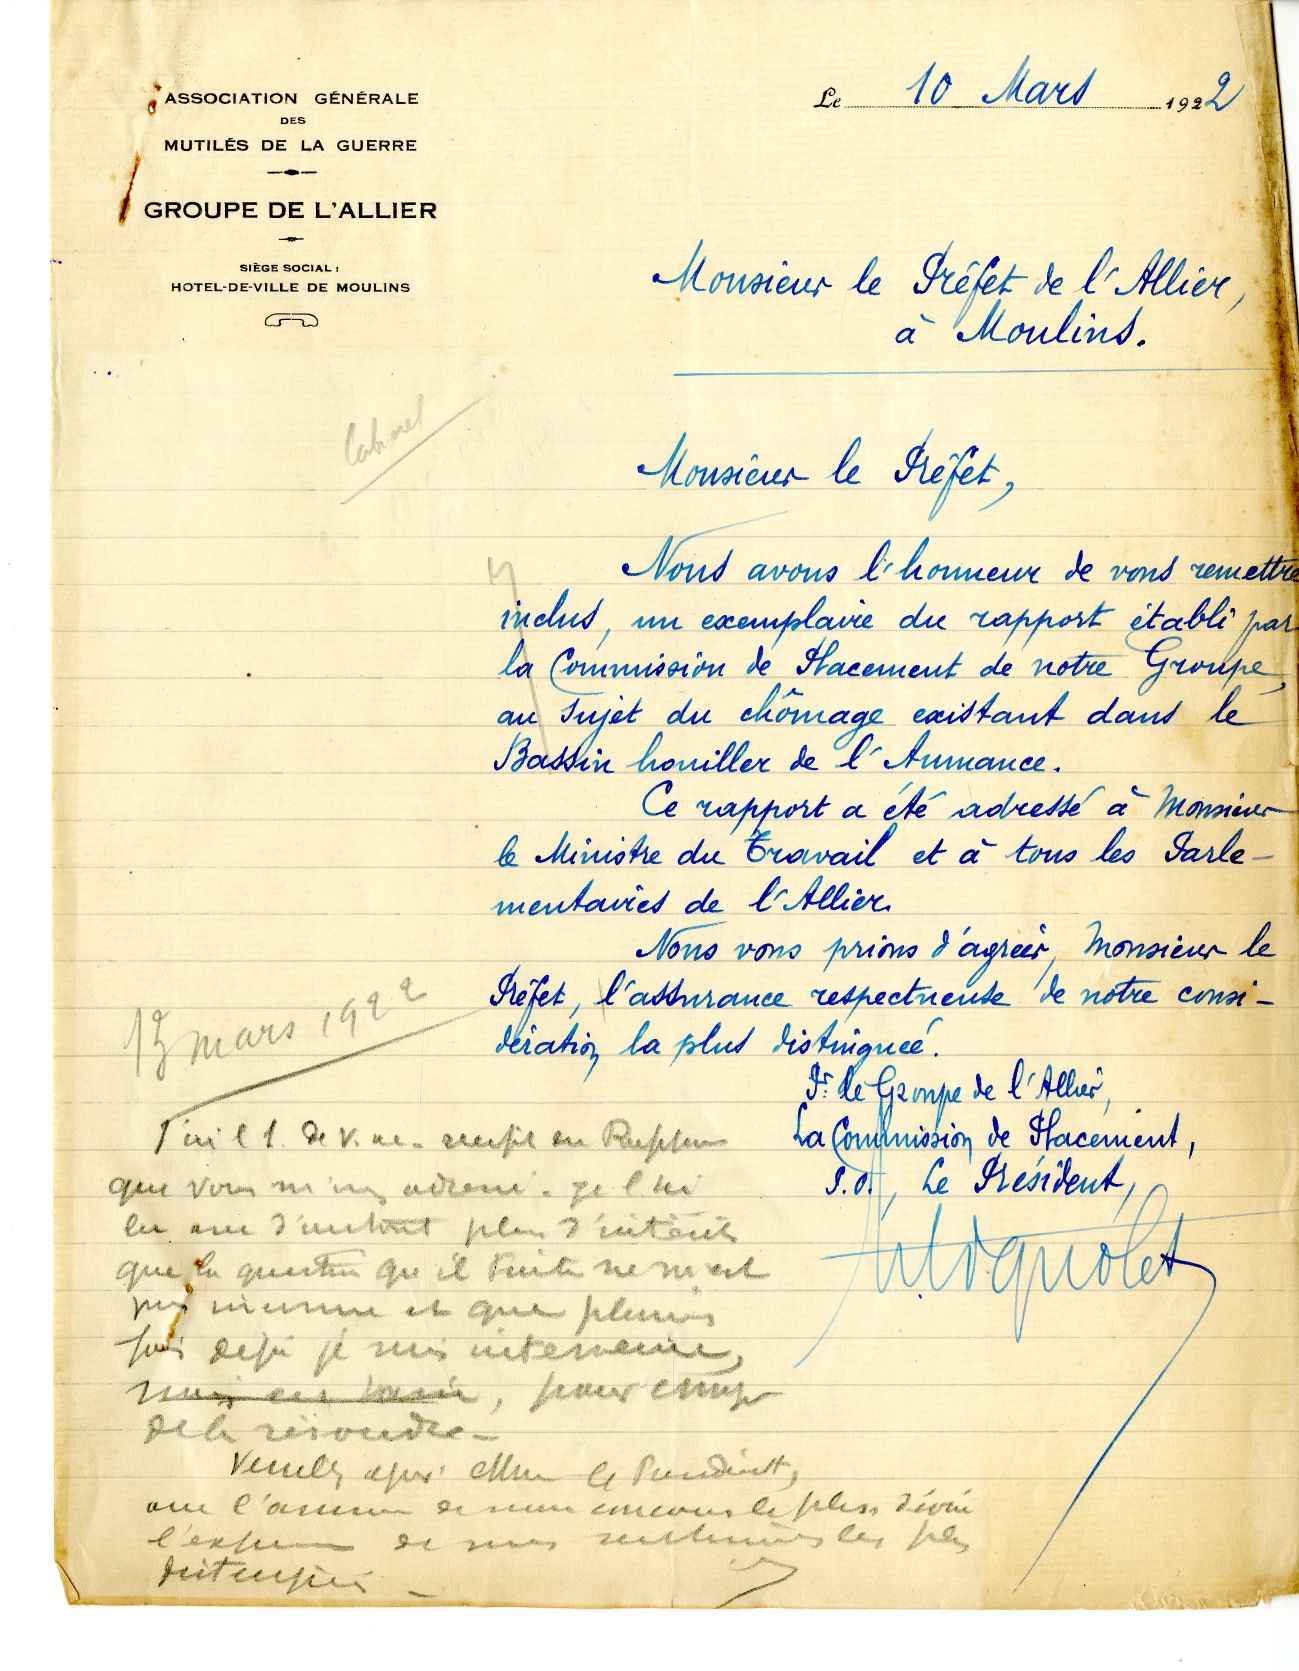 ASSOCIATION GÉNÉRALE
DES
MUTILÉS DE LA GUERRE
GROUPE DE L'ALLIER
SIÈGE SOCIAL :
HOTEL-DE-VILLE DE MOULINS
Le 10 Mars 1922
Monsieur le Préfet de l'Allier,
à Moulins.
Cabinet
Monsieur le Préfet,
Nous avons l'honneur de vous remettre
inclus, un exemplaire du rapport établi par
la Commission de Placement de notre Groupe,
au sujet du chômage existant dans le
Bassin houiller de l'Aumance.
Ce rapport a été adressé à Monsieur
le Ministre du Travail et à tous les Parle-
mentaires de l'Allier.
Nous vous prions d'agréer, Monsieur le
Préfet, l'assurance respectueuse de notre consi-
dération la plus distinguée.
Pr. le Groupe de l'Allier,
La Commission de Placement,
P.O., Le Président,
13 mars 1922
J'ai l'h. de v. ac. récept. du Rapport
que vous m'avez adressé. Je l'ai
lu avec d'autant plus d'intérêt
que la question qu'il traite ne m'est
pas inconnue et que plusieurs
fois déjà je suis intervenu,
pour essayer
de la résoudre.
Veuillez agréer Mr le Président,
avec l'assurance de mon concours le plus dévoué
l'expression de mes sentiments les plus
distingués.